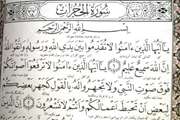 سُورَةُ الحُجُرَاتِ
بِسْمِ اللَّهِ الرَّحْمَٰنِ الرَّحِيمِ
يَٰٓأَيُّهَا الَّذِينَ ءَامَنُوا لَا تُقَدِّمُوا بَيْنَ يَدَيِ اللَّهِ وَرَسُولِهِ وَاتَّقُوا اللَّهَ
إِنَّ اللَّهَ سَمِيعٌ عَلِيمٌ ١ يَٰٓأَيُّهَا الَّذِينَ ءَامَنُوا لَا تَرْفَعُوا أَصْوَٰتَكُمْ
فَوْقَ صَوْتِ النَّبِيِّ وَلَا تَجْهَرُوا لَهُ بِالْقَوْلِ كَجَهْرِ بَعْضِكُمْ
لِبَعْضٍ أَن تَحْبَطَ أَعْمَٰلُكُمْ وَأَنتُمْ لَا تَشْعُرُونَ